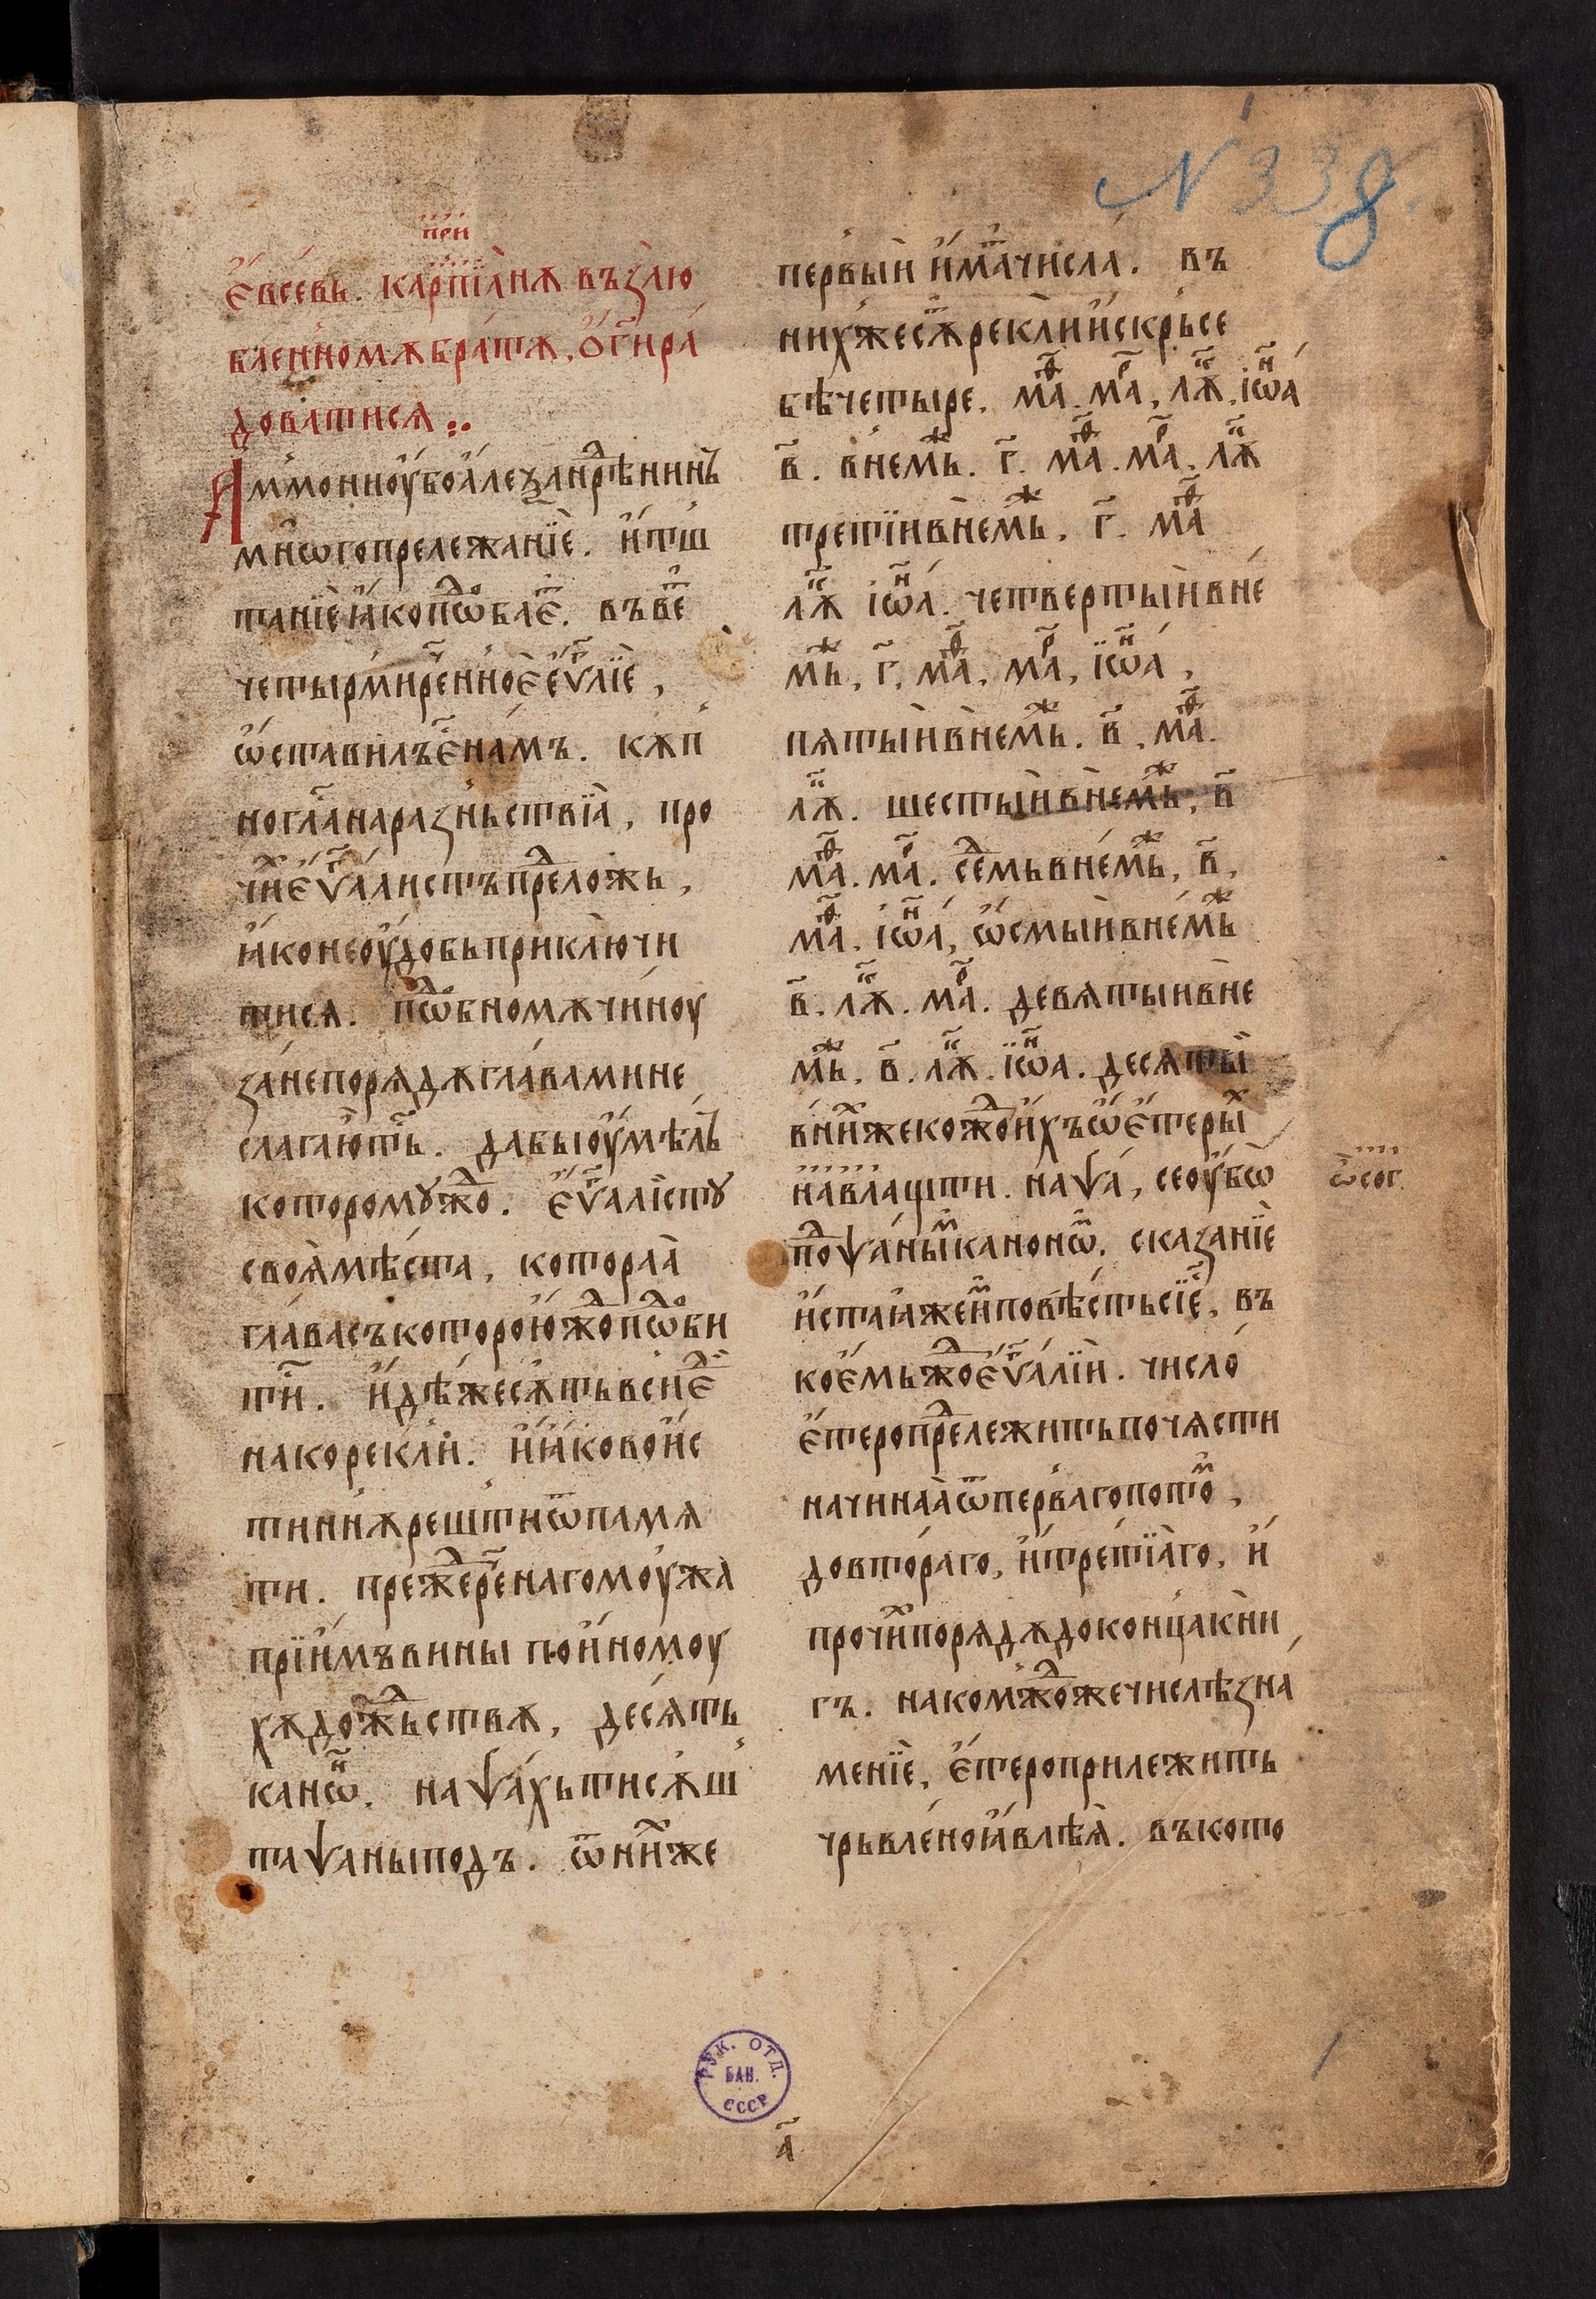 N 338
при
Е҆все́вь. карпїа̀нѫ възлю
бленномѫ бра́тѫ, ѻ҆ г҃и ра́
доватисѧ ⁘
А҆ммонноу҆боа҆леѯанⷣрѣнинъ
мнѡгопрележанїѐ. и҆тъщ
танїѐꙗ҆копⷣѡбаеⷭ҇. въвеⷭ҇
четырмирен҃ноѐе҆ѵⷢ҇лїѐ,
ѡ҆ставилъе҆ⷭ҇на́мъ. кѫп
ногл҃анаразньствїа̀, про
чиⷯе҆ѵⷢ҇а́листъпреⷣложь,
ꙗ҆конеоу҆добьприклю̀чи
тисѧ. пⷣѡбномѫчи́ноу
за́непорѧдѫгла́вамине
слагаю҆ть. дабыоу҆мѣлъ
которомꙋжⷣо. е҆ѵⷢ҇алі́стꙋ
своѧ̀мѣ́ста, котораа̀
гла́васъкоторою҆жⷣопⷣѡби
тиⷭ҇. и҆дѣ́жесѫтьвсиеⷣ
накорекли̇. и҆ꙗ҆ковои҆с
тиннѫрещиѿпамѧ
ти. прежⷣереч҃енагомоу́жа
прїи҆мъвины пои҆номоу
хѫдожⷣьствѫ, десѧ́ть
канѡⷩ҇. наѱа́хьтисѫщ
таѱаныподъ. ѿниⷯже
первы̀и и҆мат҃числа̀. въ
нихжесѫⷮрекли̇и҆скрьсе
бѣчетыре. маⷴ҇. маⷬ҇, лѫⷦ҇, і҆ѡⷩ҇а
в҃. внемьⷤ. г҃. маⷴ҇. маⷬ҇. лѫⷦ҇
третїивнемьⷤ. г҃. маⷴ҇
лѫⷦ҇ і҆ѡⷩ҇а. четвертыи҆вне
мьⷤ, г҃, маⷴ҇, маⷬ҇, їѡⷩ҇а,
пѧтыи҆внемьⷤ. в҃, маⷴ҇.
лѫⷦ҇. шестыи҆внемьⷤ, в҃
маⷴ҇. маⷬ҇. сеⷣмьвнемьⷤ, в҃,
маⷴ҇. і҆ѡⷩ҇а, ѡ҆смыи҆внемьⷤ
в҃. лѫⷦ҇. маⷬ҇. девѧтыивне
мьⷤ. в҃. лѫⷦ҇. їѡⷩ҇а. десѧты́
вниⷯжекожⷣои҆хъѡ҆е҆терыⷯ
навлащти. наѱа̀, сеоу҆бѡ
ѡ҆сог.
поⷣѱаныⷨканонѡⷨ. сказанїѐ
и҆стаꙗ҆жеиⷨповѣстьсїеⷭ҇, въ
кое҆мьжⷣое҆ѵⷢ҇алїи. число̀
е҆теропреⷣлежитьпочѧсти
начинаа̀ѿпервагопотоⷨ,
довтораго, и҆третїа̀го, и҆
прочиⷯпорѧдѫдоконцакни
гъ. накомѫжⷣожечислѣзна
менїѐ, е҆тероприлежить
чрьвлено̀ꙗ҆влѣѧ̀. въкото
ѱаныподъ
РУК. ОТД.
БАН.
СССР
а҃
1